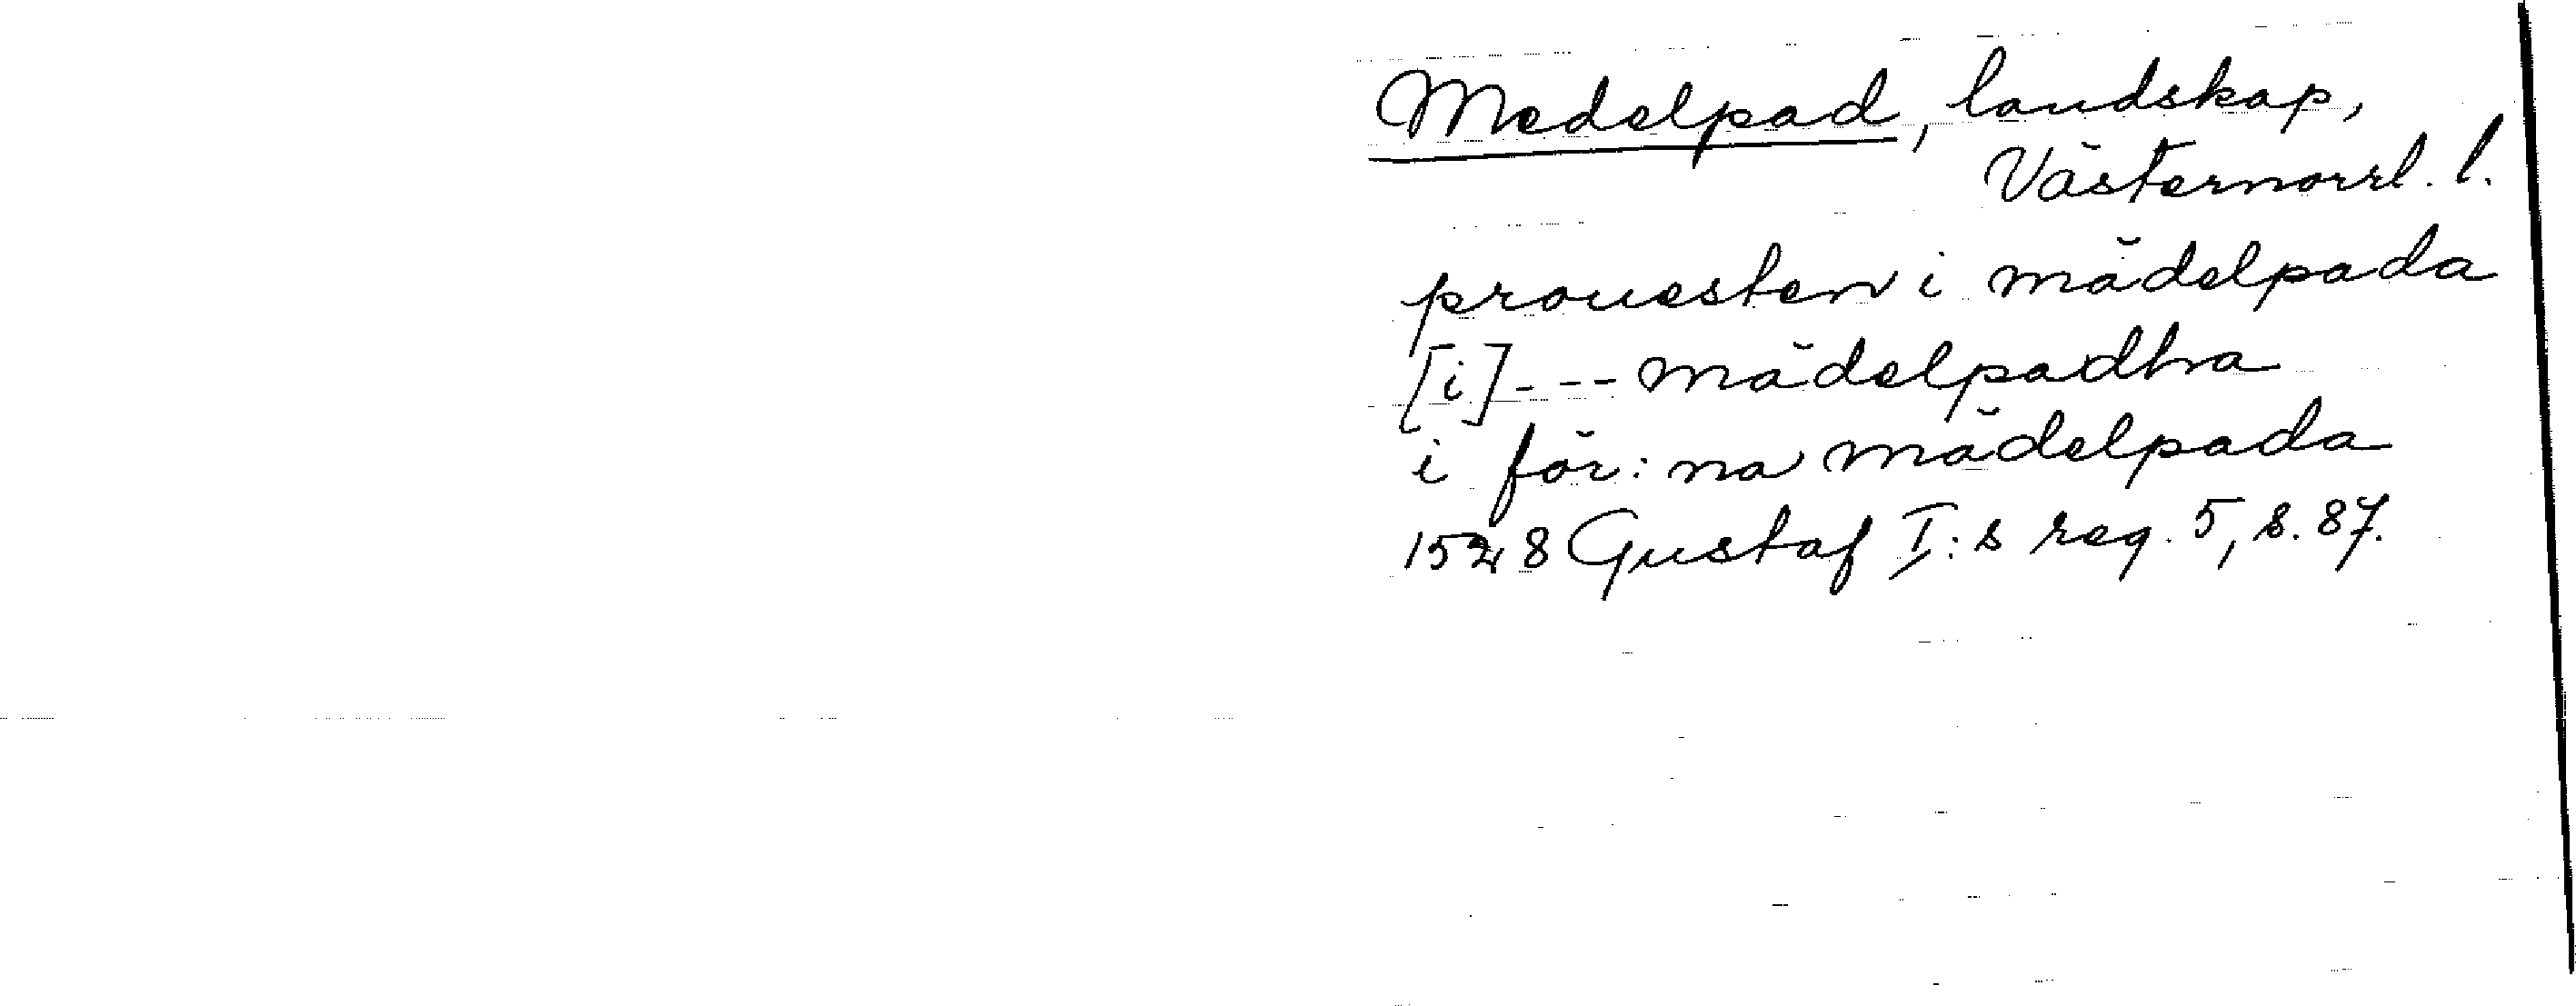 Medelpad, landskap,
Västernorrl. l.
prouesten i mädelpada
[i] - - - mädelpadha
i för: na mädelpada
1528 Gustaf I:s reg. 5, s. 87.